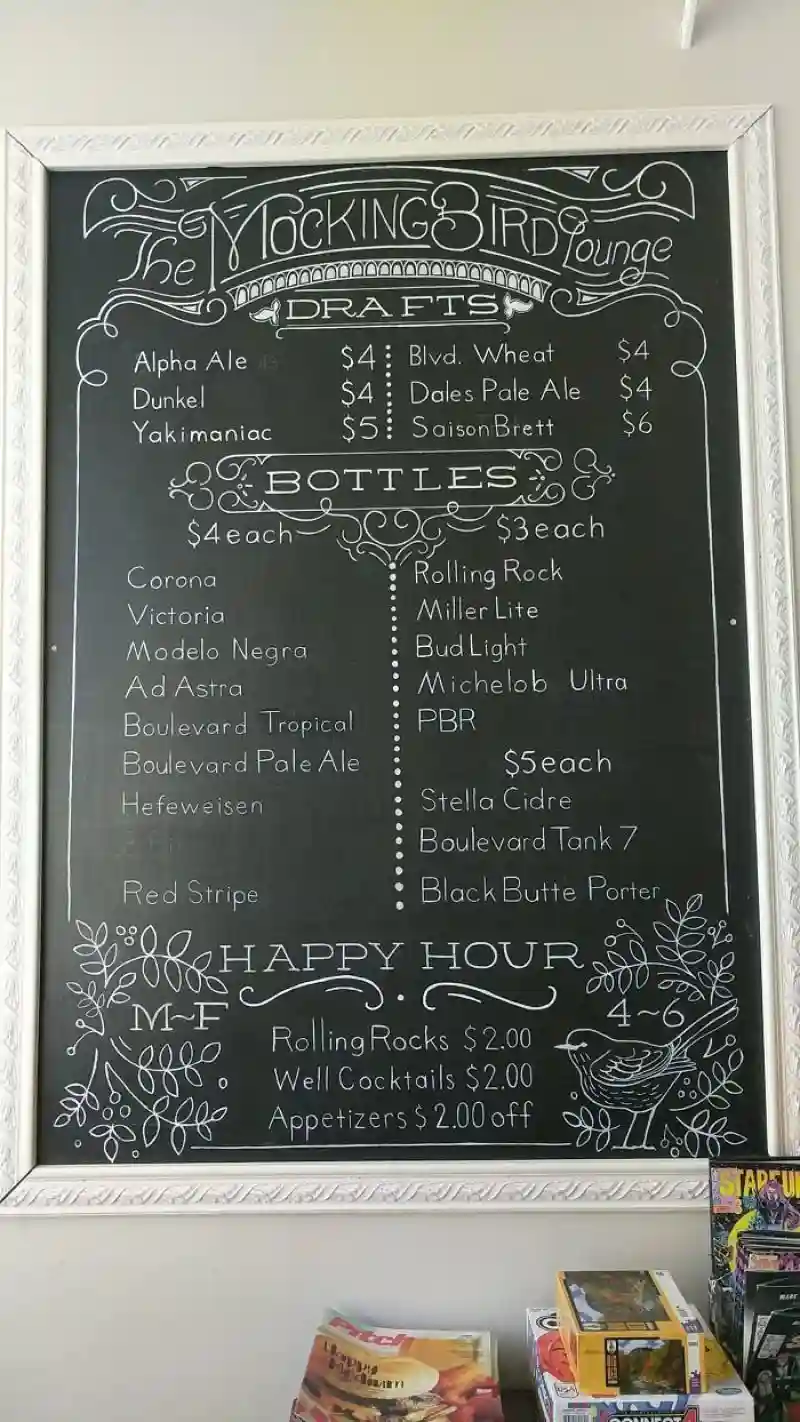 The MockingBird Lounge
DRAFTS
Alpha Ale $4
Dunkel $4
Yakimaniac $5
Blvd. Wheat $4
Dales Pale Ale $4
Saison Brett $6
BOTTLES
$4 each
Corona
Victoria
Modelo Negra
Ad Astra
Boulevard Tropical
Boulevard Pale Ale
Hefeweisen
Red Stripe
$3 each
Rolling Rock
Miller Lite
Bud Light
Michelob Ultra
PBR
$5 each
Stella Cidre
Boulevard Tank 7
Black Butte Porter
HAPPY HOUR
M~F 4~6
Rolling Rocks $2.00
Well Cocktails $2.00
Appetizers $2.00 off
Pitch
CONNECT 4